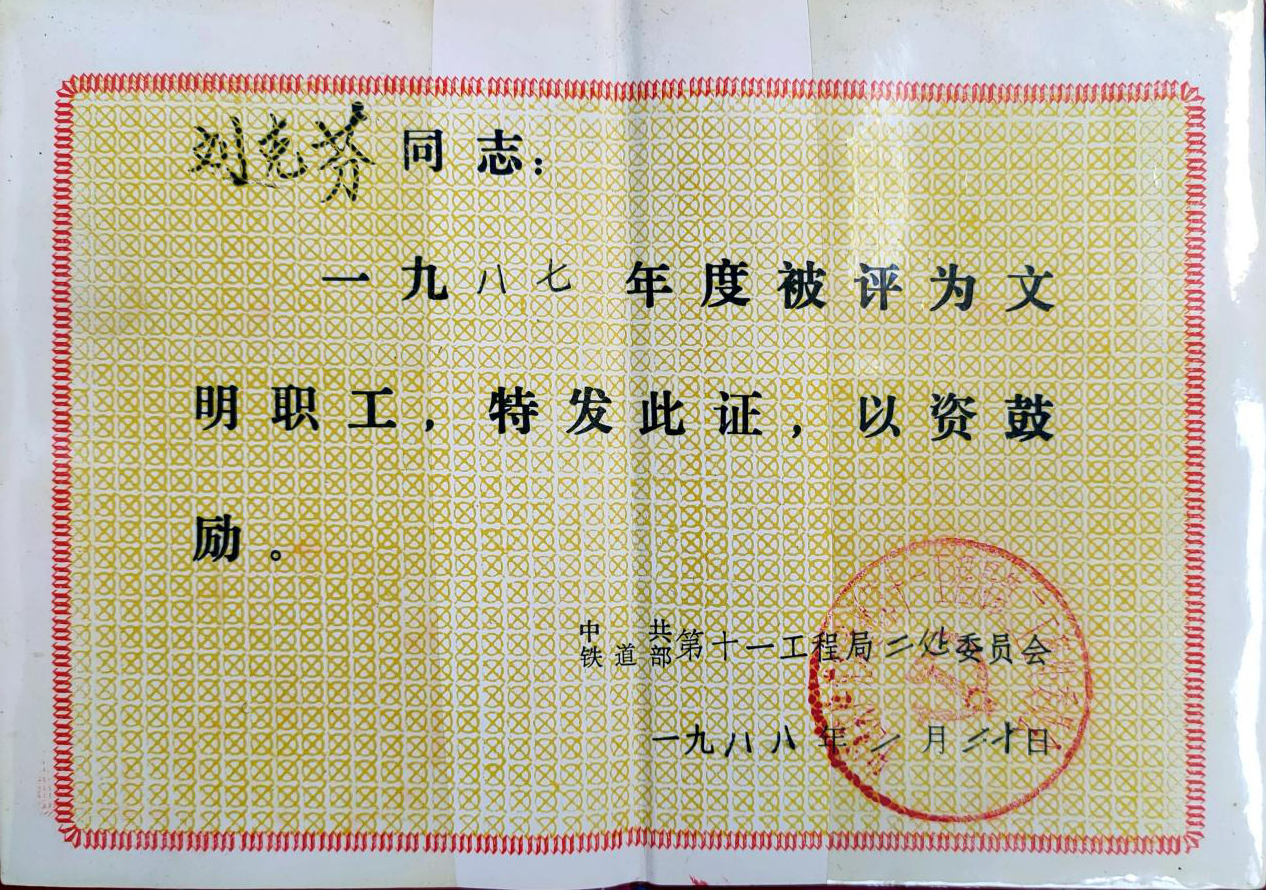 刘克芬同志：
一九八七年度被评为文
明职工，特发此证，以资鼓
励。
中共
铁道部第十一工程局二处委员会
一九八八年二月二十日